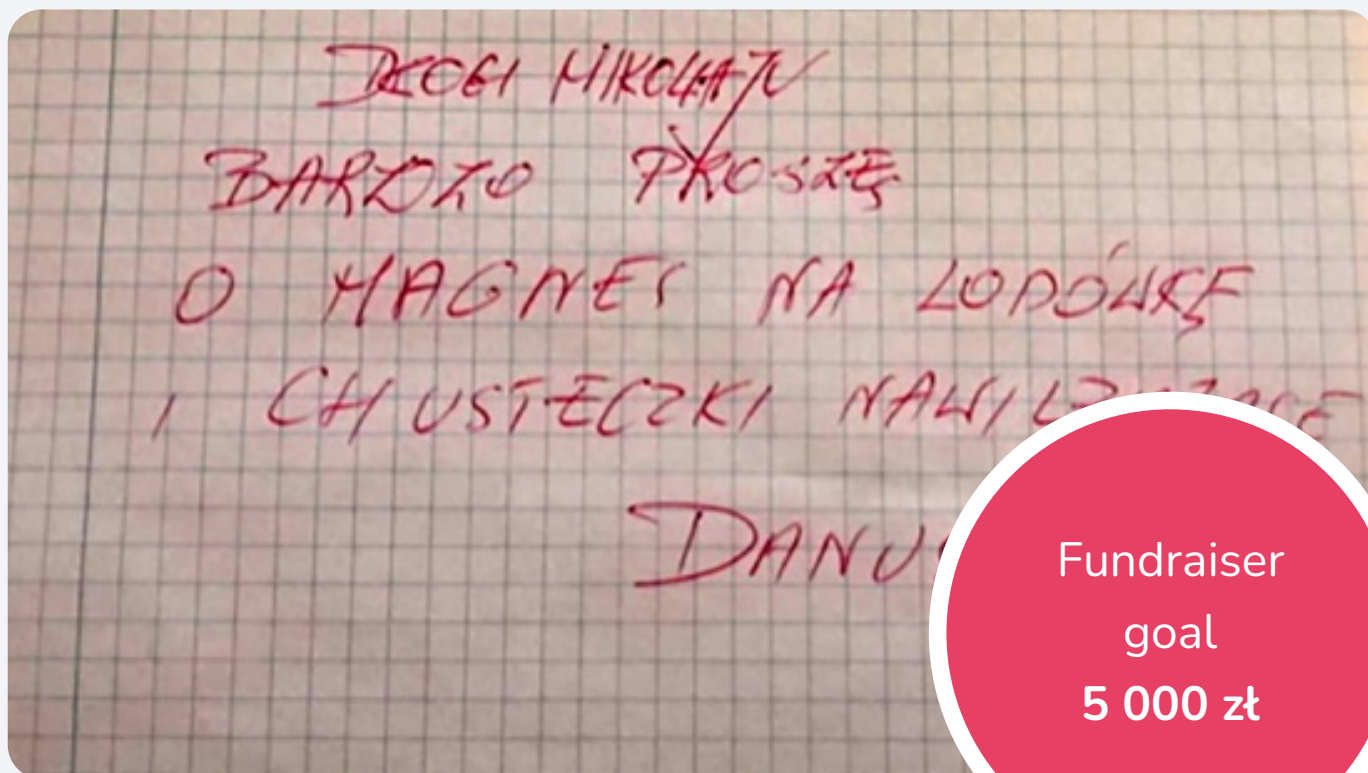 DROGI MIKOŁAJU
BARDZO PROSZĘ
O MAGNES NA LODÓWKĘ
I CHUSTECZKI
Fundraiser
goal
5 000 zł